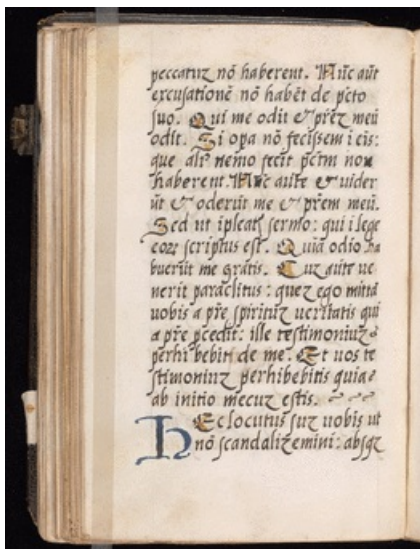 peccatuʒ nō haberent. Nūc aūt
excusationē nō habēt de pc̄to
suo. Qui me odit & pr̄eʒ meū
odit. Si opa nō fecissem i eis:
que ali9 nemo fecit pctm̄ non
haberent. Nūc aūte & vider
ūt & oderūt me & pr̄em meū.
Sed ut ipleat̄ sermo: qui i lege
eoꝝ scriptus est. Quia odio ha
buerūt me gratis. Cuʒ aūte ue
nerit paraclitus: queʒ ego mittā
uobis a pr̄e spirituʒ ueritatis qui
a pr̄e pcedit: ille testimoniuʒ
perhibebit de me. Et uos te
stimoniuʒ perhibebitis quia
ab initio mecuʒ estis.
HEc locutus suʒ uobis ut
nō scandalizemini: absqʒ